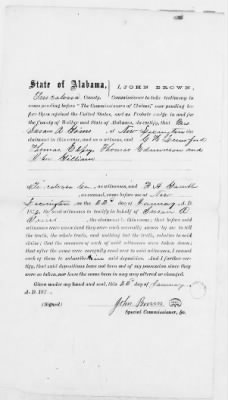 State of Alabama, } I, JOHN BROWN,
Tuscaloosa County, } Commissioner to take testimony in
cases pending before "The Commissioners of Claims," now pending be-
fore them against the United States, and as Probate Judge in and for
the County of Walker and State of Alabama, do certify, that Mrs
Susan A. at New Lexington the
claimant in this cause, and as a witness, and
Thomas Thomas and
William
Tuscaloosa Co. as witnesses, and
as counsel, came before me at New
Lexington on the 22d day of January A. D.
187 , the said witnesses to testify in behalf of Susan A.
, the claimant in this cause; that before said
witnesses were examined they were each severally sworn by me to tell
the truth, the whole truth, and nothing but the truth, relative to said
claim; that the answers of each of said witnesses were taken down;
that after the same were carefully read over to said witnesses, I caused
each of them to subscribe said deposition. And I further cer-
tify, that said depositions have not been out of my possession since they
were so taken, nor have the same been in any way altered or changed.
Given under my hand and seal, this 22d day of January
A. D. 187
(Signed) John Brown
Special Commissioner, &c.